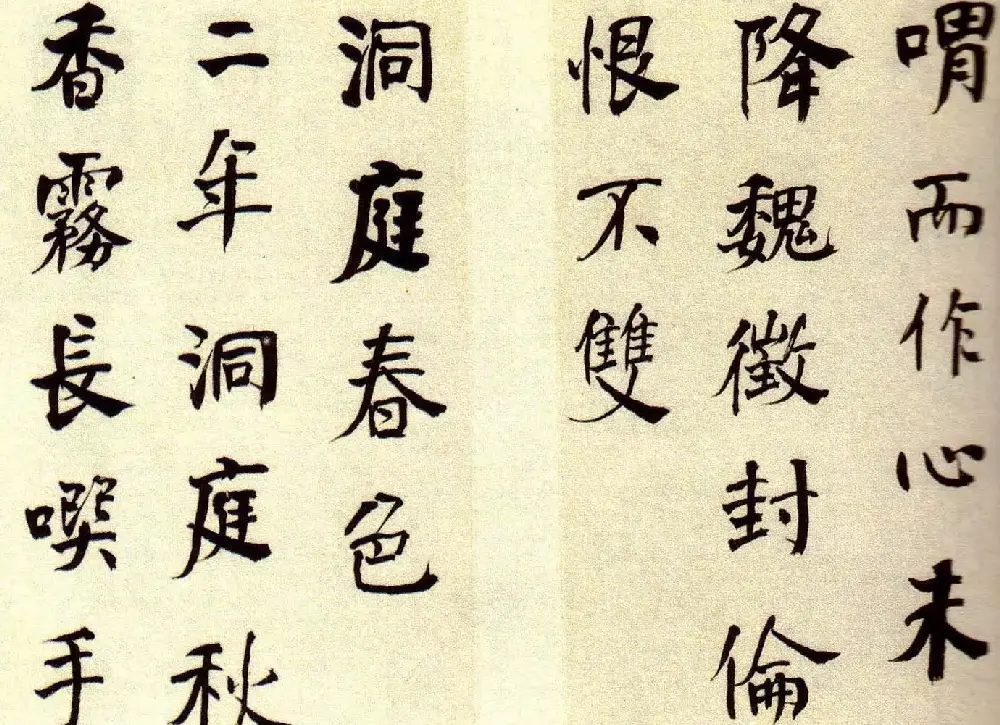 喟而作心未
降魏徵封倫
恨不雙
洞庭春色
二年洞庭秋
香霧長噀手